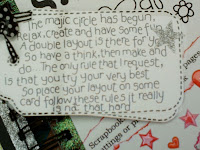 The magic circle has begun,
Relax, create and have some fun
A double layout is there for you
So have a think, then make and
do. The only rule that I request,
Is that you try your very best
So place your layout on some
card follow the rules it really
is not that hard.
Scrapbook